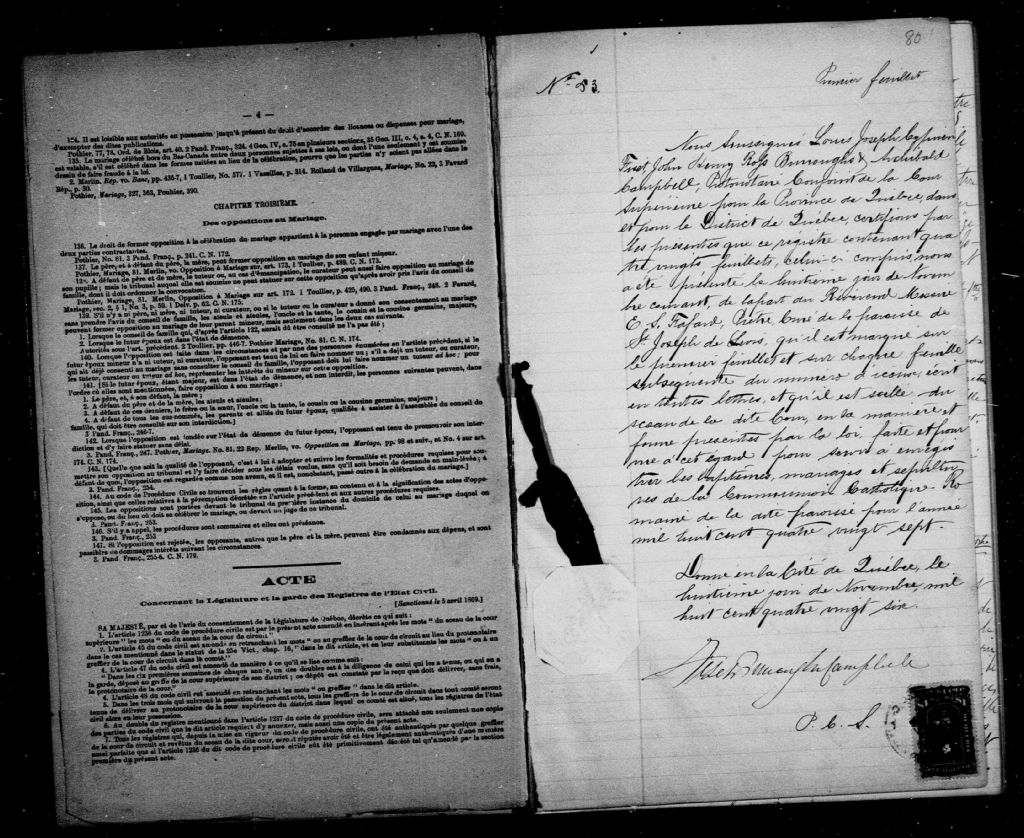 — 4 —
134. Il est loisible aux autorités en possession jusqu'à présent du droit d'accorder des licences ou dispenses pour mariage,
d'exempter des dites publications.
Pothier, 77, 78. Ord. de Blois, art. 40. 2 Pand. Franç., 324. 4 Geo. IV, c. 75 en plusieurs sections, 35 Geo. III, c. 4, s. 4, C. N. 169.
135. Le mariage célébré hors du Bas-Canada entre deux personnes sujettes à ses lois, ou dont l'une seulement y est soumise
est valable, s'il est célébré dans les formes usitées au lieu de la célébration, pourvu que les parties n'y soient pas allées dans le
dessin de faire fraude à la loi.
2. Merlin. Rép. vo. Banc, pp. 436-7, 1 Toullier, No. 577. 1 Vazeilles, p. 314. Rolland de Villargues, Mariage, No. 22, 3 Favard
Rép., p. 30.
Pothier, Mariage, 227, 363, Pouhier, 390.
CHAPITRE TROISIÈME.
Des oppositions au Mariage.
136. Le droit de former opposition à la célébration du mariage appartient à la personne engagée par mariage avec l'une des
deux parties contractantes.
Pothier, No. 81. 3 Pand. Franç., p. 241. C. N. 172.
137. Le père, et à défaut du père, la mère, peut former opposition au mariage de son enfant mineur.
Pothier, Mariage, 81. Merlin, vo. Opposition à Mariage sur, art. 173, 1 Toullier, p. 489. C. N. 173.
138. A défaut de père et de mère, le tuteur, ou, au cas d'émancipation, le curateur peut aussi faire opposition au mariage de
son pupille; mais le tribunal auquel elle est soumise ne peut statuer sur cette opposition qu'après avoir pris l'avis du conseil de
famille, dont il doit ordonner la convocation.
Pothier, Mariage, 81. Merlin, Opposition à Mariage sur art. 172. 1 Toullier, p. 425, 490. 3 Pand. Franç., 248. 2 Favard,
Mariage, sec. 2, § 1, No. 3, p. 59. 1 Delv. p. 62. C. N. 175.
139. S'il n'y a ni père, ni mère, ni tuteur, ni curateur, ou si le tuteur ou le curateur a donné son consentement au mariage
sans prendre l'avis du conseil de famille, les aïeuls et aïeules, l'oncle et la tante, le cousin et la cousine germains, majeurs,
peuvent former opposition au mariage de leur parent mineur, mais seulement dans les deux cas suivants.
1. Lorsque le conseil de famille qui, d'après l'article 122, aurait dû être consulté ne l'a pas été;
2. Lorsque le futur époux est dans l'état de démence.
Autorités sous l'art. précédent. 2 Toullier, pp. 446-7. Pothier Mariage, No. 81. C. N. 174.
140. Lorsque l'opposition est faite dans les circonstances et par une des personnes énumérées en l'article précédent, si le
futur époux mineur n'a ni tuteur, ni curateur, l'opposant est tenu de lui en faire nommer un; s'il a déjà un tuteur, ou curateur,
qui ait déjà consenti au mariage sans consulter le conseil de famille, l'opposant doit lui faire nommer un tuteur ad hoc; pour
les tuteur, curateur ou tuteur ad hoc, représenter les intérêts du mineur sur cette opposition.
141. [Si le futur époux, étant majeur, est dans l'état de démence, et non interdit, les personnes suivantes peuvent, dans
l'ordre où elles sont mentionnées, faire opposition à son mariage:
1. Le père, et, à son défaut, la mère;
2. A défaut du père et de la mère, les aïeuls et aïeules;
3. A défaut de ces derniers, le frère ou la sœur, l'oncle ou la tante, le cousin ou la cousine germains, majeurs;
4. A défaut de tous les sus-nommés, les parents et alliés du futur époux, qualifiés à assister à l'assemblée du conseil de
famille, qui doit être consulté sur son interdiction.]
3 Pand. Franç., 246-7.
142. Lorsque l'opposition est fondée sur l'état de démence du futur époux, l'opposant est tenu de promouvoir son inter-
diction et d'y faire statuer sans délai.
3. Pand. Franç., 247. Pothier, Mariage. No. 81. 22 Rep. Merlin, vo. Opposition au Mariage, pp. 98 et suiv., et No. 4 sur art.
174. C. N. 174.
143. [Quelle que soit la qualité de l'opposant, c'est à lui à adopter et suivre les formalités et procédures requises pour sou-
mettre son opposition au tribunal et l'y faire décider sous les délais voulus, sans qu'il soit besoin de demande en main-levée; à
défaut de quoi, l'opposition est regardée comme non avenu, et il est, nonobstant, passé outre à la célébration du mariage.]
3. Pand. Franç., 254.
144. Au Code de Procédure Civile se trouvent les règles quant à la forme, au contenu et à la signification des actes d'oppo-
sition, ainsi que celles relatives à la péremption décrétée en l'article précédent et aux autres procédures requises.
145. Les oppositions sont portées devant le tribunal de première instance du domicile de celui au mariage duquel on
s'oppose, ou du lieu où doit se célébrer le mariage, ou devant un juge de ce tribunal.
3. Pand. Franç., 252.
146. S'il y a appel, les procédures sont sommaires et elles ont préséance.
3. Pand. Franç., 253
147. Si l'opposition est rejetée, les opposants, autres que le père et la mère, peuvent être condamnés aux dépens, et sont
passibles de dommages intérêts suivant les circonstances.
3. Pand. Franç., 255-6. C. N. 179.
ACTE
Concernant la Législature et la garde des Registres de l'Etat Civil.
[Sanctionné le 5 avril 1869.]
SA MAJESTÉ, par et de l'avis du consentement de la Législature de Québec, décrète ce qui suit:
1. L'article 1236 du code de procédure civile est par le présent acte amendé en insérant après les mots "du sceau de la cour
supérieure" les mots "ou du sceau de la cour de circuit"
2. L'article 45 du code civil est amendé en retranchant les mots "ou au greffier de la cour de circuit au lieu du protonotaire
dans le cas mentionné dans le statut de la 25e Vict., chap. 16," dans le dit article, et en leur substituant les mots "ou à ce
greffier de la cour de circuit dans le comté."
3. L'article 47 du code civil est amendé de manière à ce qu'il se lise comme suit:
"Dans les six premières semaines de chaque année, un des doubles est à la diligence de celui qui les a tenus, ou qui en a
la garde, déposé au greffe de la cour supérieure de son district; ce dépôt est constaté par le reçu que doit délivrer, sans frais,
le protonotaire de la cour."
4. L'article 48 du code civil est amendé en retranchant les mots "ou greffier" dans le dit article.
5. Dans les trois mois qui suivront la passation du présent acte, tous les greffiers de la cour de circuit dans tout comté seront
tenus de délivrer au protonotaire de la cour supérieure du district dans lequel ce comté est situé, tous les registres de l'état
civil alors en leur possession.
6. Au double du registre mentionné dans l'article 1237 du code de procédure civile, sera attaché non seulement une copie
des parties du code civil que le dit article requiert d'y annexer, mais aussi une copie du présent acte.
7. Tous les registres qui, depuis la mise en vigueur du code de procédure civile, ont été authentiqués par quelque greffier
de la cour de circuit et revêtus du sceau de la dite cour, seront réputés avoir été et être légalement authentiqués d'une manière
aussi parfaite que si l'article 1236 du dit code de procédure civile eût été primitivement décrété tel qu'amendé par la section
première du présent acte.
80
No 83.
Premier feuillet
Nous Soussignés Louis Joseph Cyprien
Fiset, John Henry Ross Burroughs & Archibald
Campbell, Protonotaire Conjoint de la Cour
Supérieure pour la Province de Québec, dans
et pour le District de Québec, certifions par
les présentes que ce registre contenant qua
tre vingts feuillets, celui-ci compris, nous
a été présenté le huitième jour de Novem
bre courant, de la part du Révérend Messire
E. S. Fafard, Prêtre, Curé de la paroisse de
St Joseph de Lévis, qu'il est marqué sur
le premier feuillet et sur chaque feuillet
subséquent du numéro d'icelui, écrit
en toutes lettres, et qu'il est scellé du
sceau de la dite Cour, en la manière et
forme prescrites par la loi, faite et pour
vue à cet égard pour servir à enregis
trer les baptêmes, mariages et sépultu
res de la Communion Catholique Ro
maine de la dite paroisse pour l'année
mil huit cent quatre vingt sept.
Donné en la Cité de Québec, le
huitième jour de Novembre, mil
huit cent quatre vingt six.
Fiset Burroughs Campbell
P. C. S.